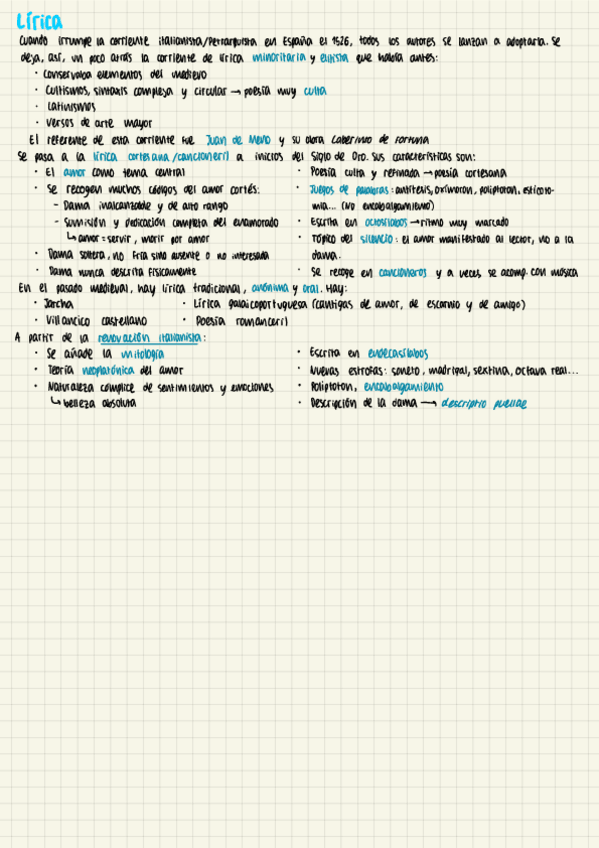 Lírica
Cuando irrumpe la corriente italianista/Petrarquista en España el 1526, todos los autores se lanzan a adoptarla. Se
deja, así, un poco atrás la corriente de lírica minoritaria y elitista que había antes:
· Conservaba elementos del medievo
· Cultismos, sintaxis compleja y circular → poesía muy culta
· Latinismos
· Versos de arte mayor
El referente de esta corriente fue Juan de Mena y su obra Laberinto de Fortuna
Se pasa a la lírica cortesana/cancioneril a inicios del Siglo de Oro. Sus características son:
· El amor como tema central
· Se recogen muchos códigos del amor cortés:
- Dama inalcanzable y de alto rango
- Sumisión y dedicación completa del enamorado
↳ amor = servir, morir por amor
· Dama soltera, no fría sino ausente o no interesada
· Dama nunca descrita físicamente
· Poesía culta y refinada → poesía cortesana
· Juegos de palabras: antítesis, oxímoron, poliptoton, esticoto-
mia... (No encabalgamiento)
· Escrita en octosílabos → ritmo muy marcado
· Tópico del silencio: el amor manifestado al lector, no a la
dama.
· Se recoge en cancioneros y a veces, se acomp. con música
En el pasado medieval, hay lírica tradicional, anónima y oral. Hay:
· Jarcha
· Lírica galaicoportuguesa (cantigas de amor, de escarnio y de amigo)
· Villancico castellano
· Poesía romanceril
A partir de la renovación italianista:
· Se añade la mitología
· Teoría neoplatónica del amor
· Naturaleza cómplice de sentimientos y emociones
↳ belleza absoluta
· Escrita en endecasílabos
· Nuevas estrofas: soneto, madrigal, sextina, octava real...
· Poliptoton, encabalgamiento
· Descripción de la dama → descriptio puellae